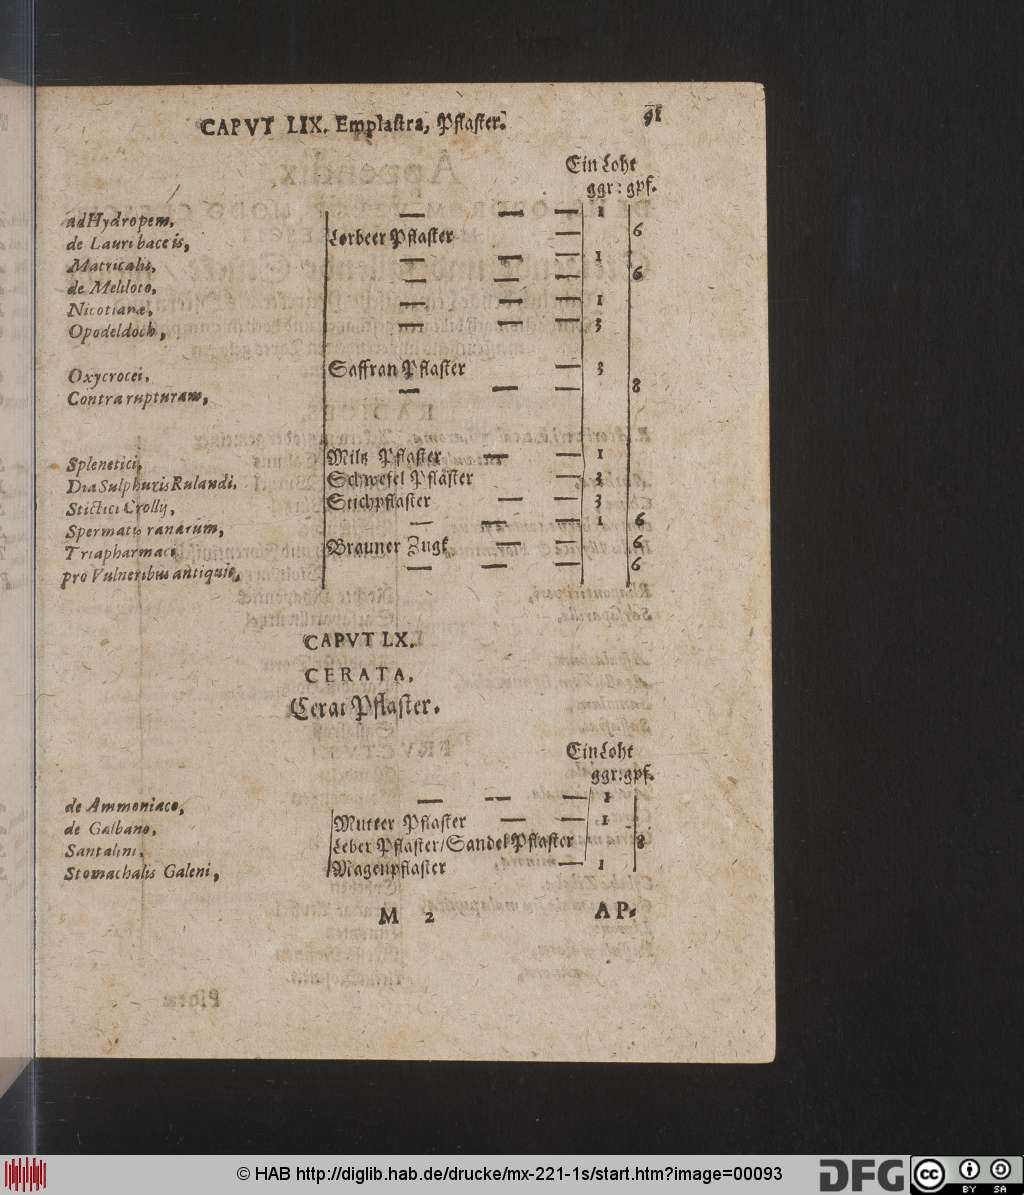 CAPVT LIX. Emplastra, Pflaster. 91
Ein Loht
ggr: gpf.
ad Hydropem, — — — 1
de Lauri baccis, Lorbeer Pflaster — 6
Matricalis, — — — 1
de Meliloto, — — — 6
Nicotianæ, — — — 1
Opodeldoch, — — — 3
Oxycrocei, Saffran Pflaster — 3
Contra rupturam, — — — 8
Splenetici, Miltz Pflaster — — 1
Dia Sulphuris Rulandi, Schwefel Pflaster — 3
Stictici Crollij, Stichpflaster — — 3
Spermatis ranarum, — — — 1 6
Triapharmaci Brauner Zugk — — 6
pro Vulneribus antiquis, — — — 6
CAPVT LX.
CERATA.
Cerat Pflaster.
Ein Loht
ggr: gpf.
de Ammoniaco, — — — 1
de Galbano, Mutter Pflaster — — 1
Santalini, Leber Pflaster/ Sandel Pflaster 8
Stomachalis Galeni, Magenpflaster — 1
M 2 AP-
© HAB http://diglib.hab.de/drucke/mx-221-1s/start.htm?image=00093
DFG
cc BY SA